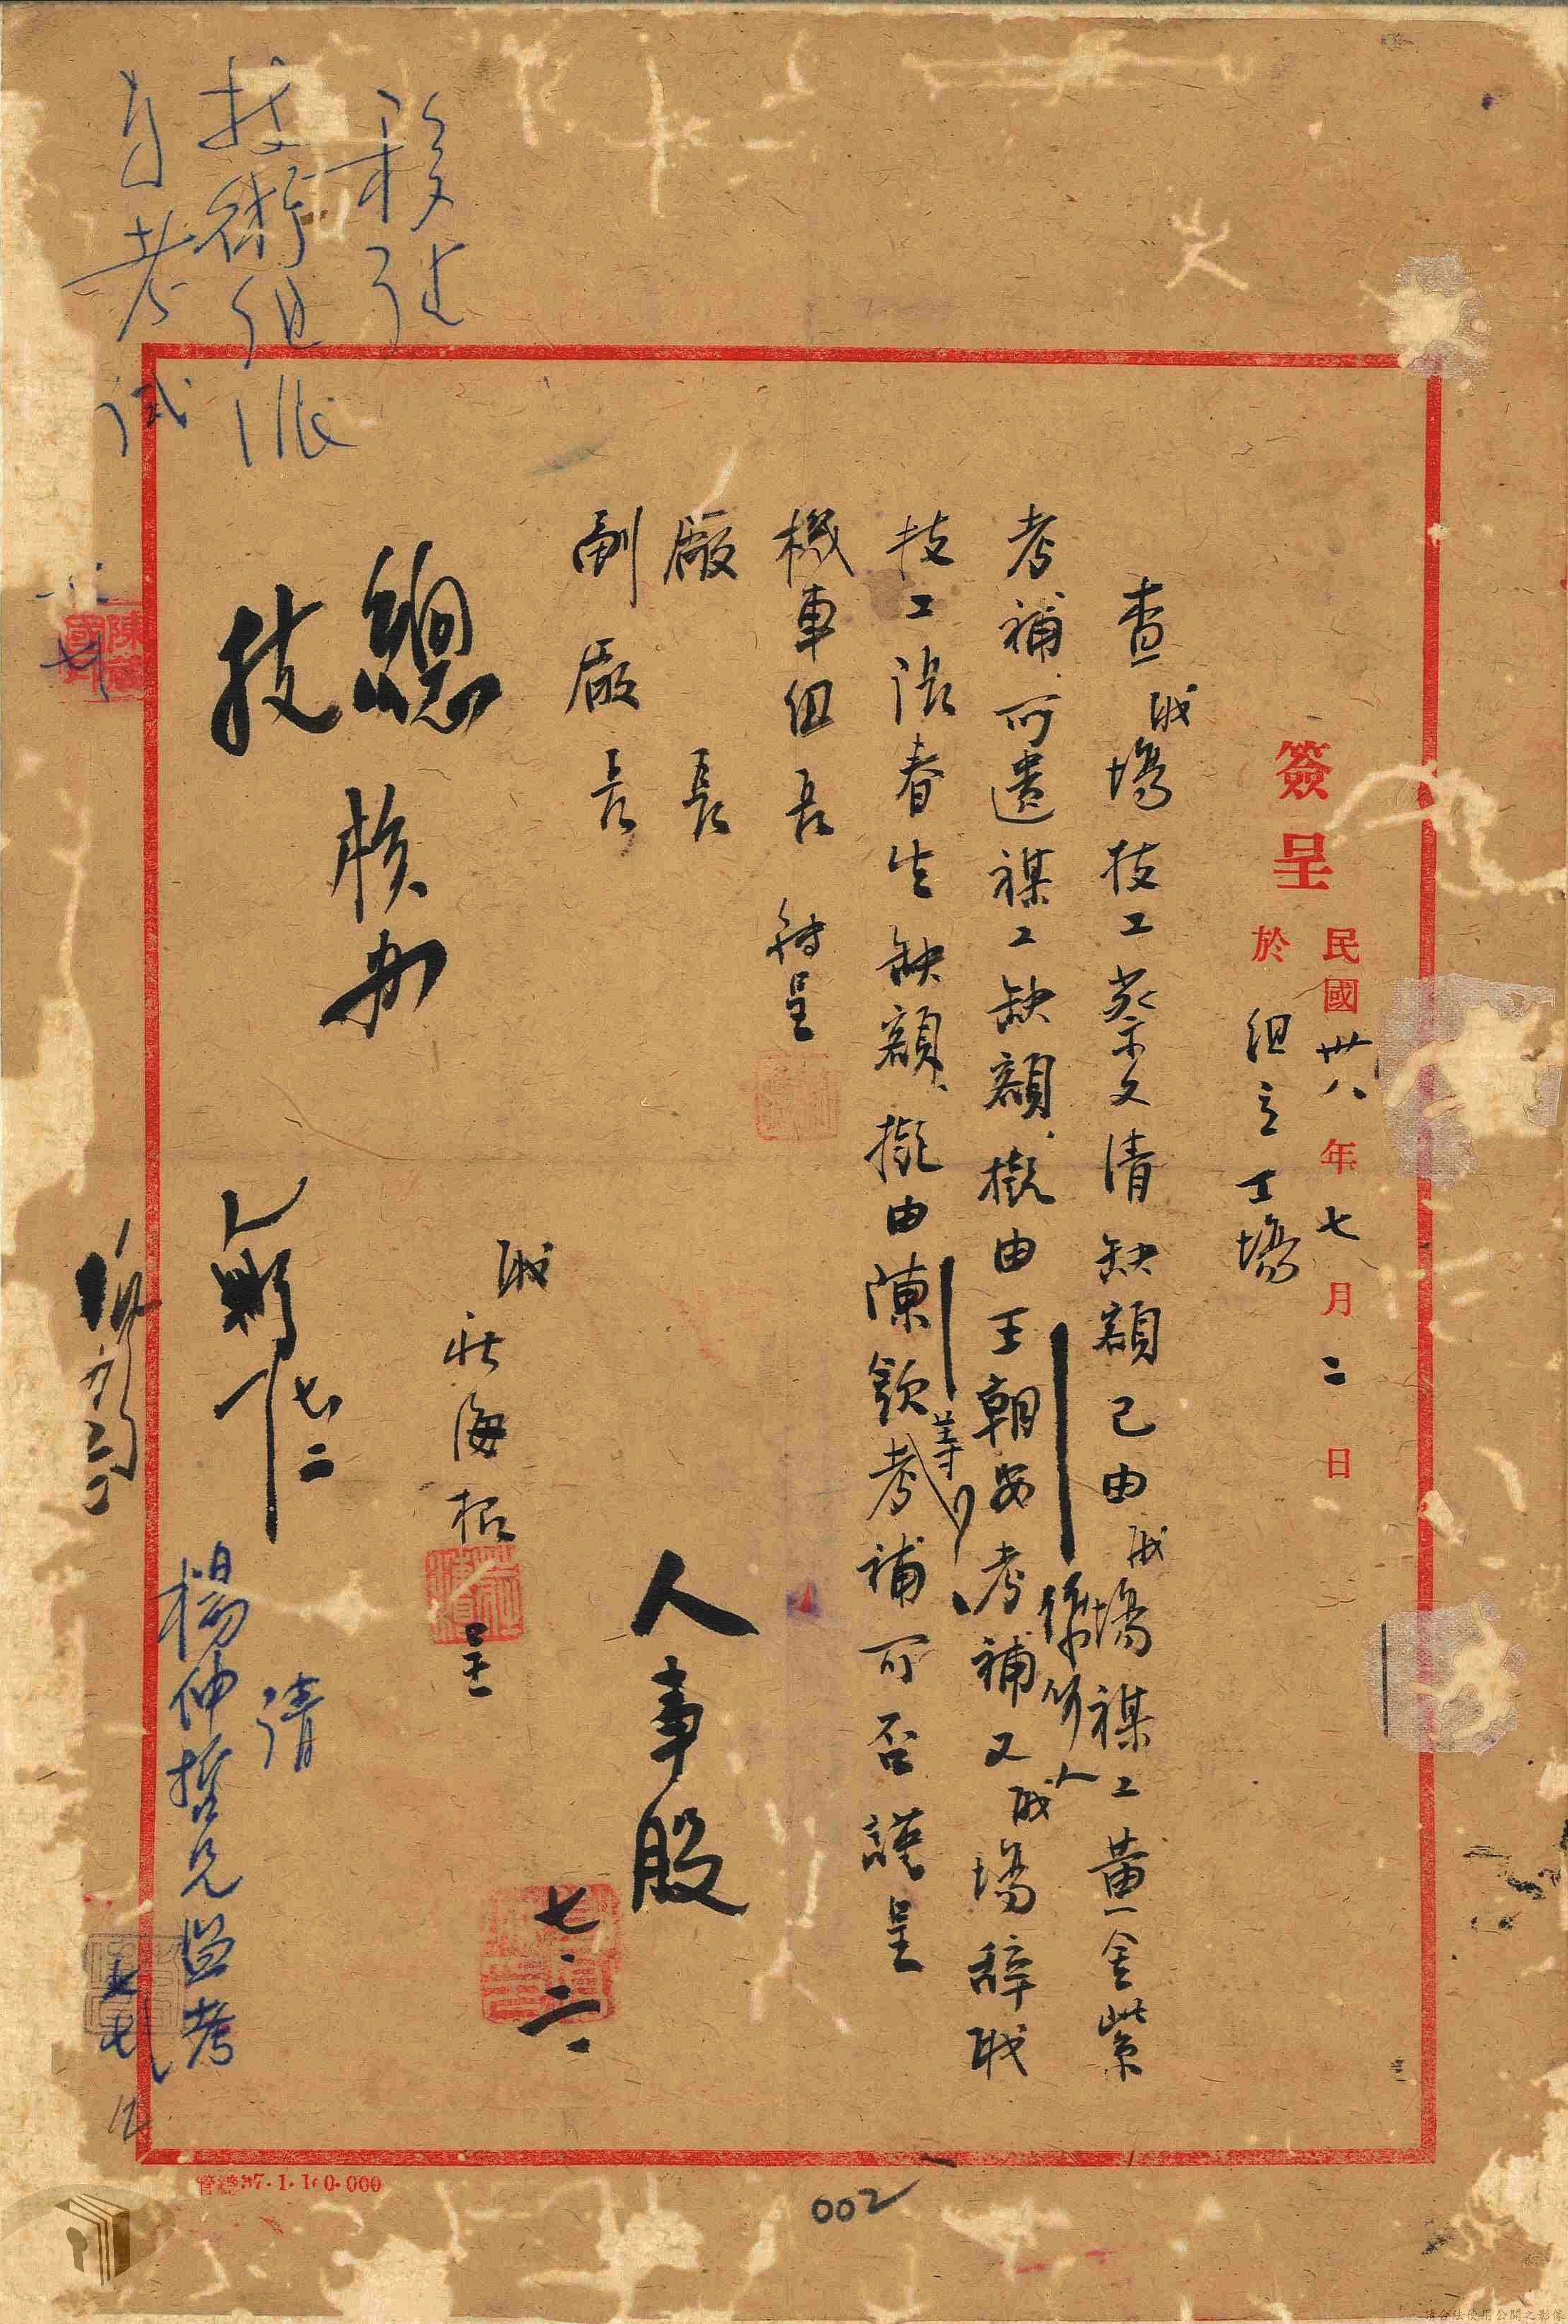 簽呈
民國卅八年七月二日
於 組立工場
查職場技工蔡文清缺額已由職場課工黃金紫
考補所遺課工缺額擬由王朝安考補又職場辭職
技工張春生缺額擬由陳欽考補可否謹呈
等
機車組長 轉呈
廠長
副廠長
職 莊海根 呈
人事股
七.二
總 核办
技
七二
請
楊仲哲兄監考
移往
技術組派
員考試
管總37.1.100.000
002